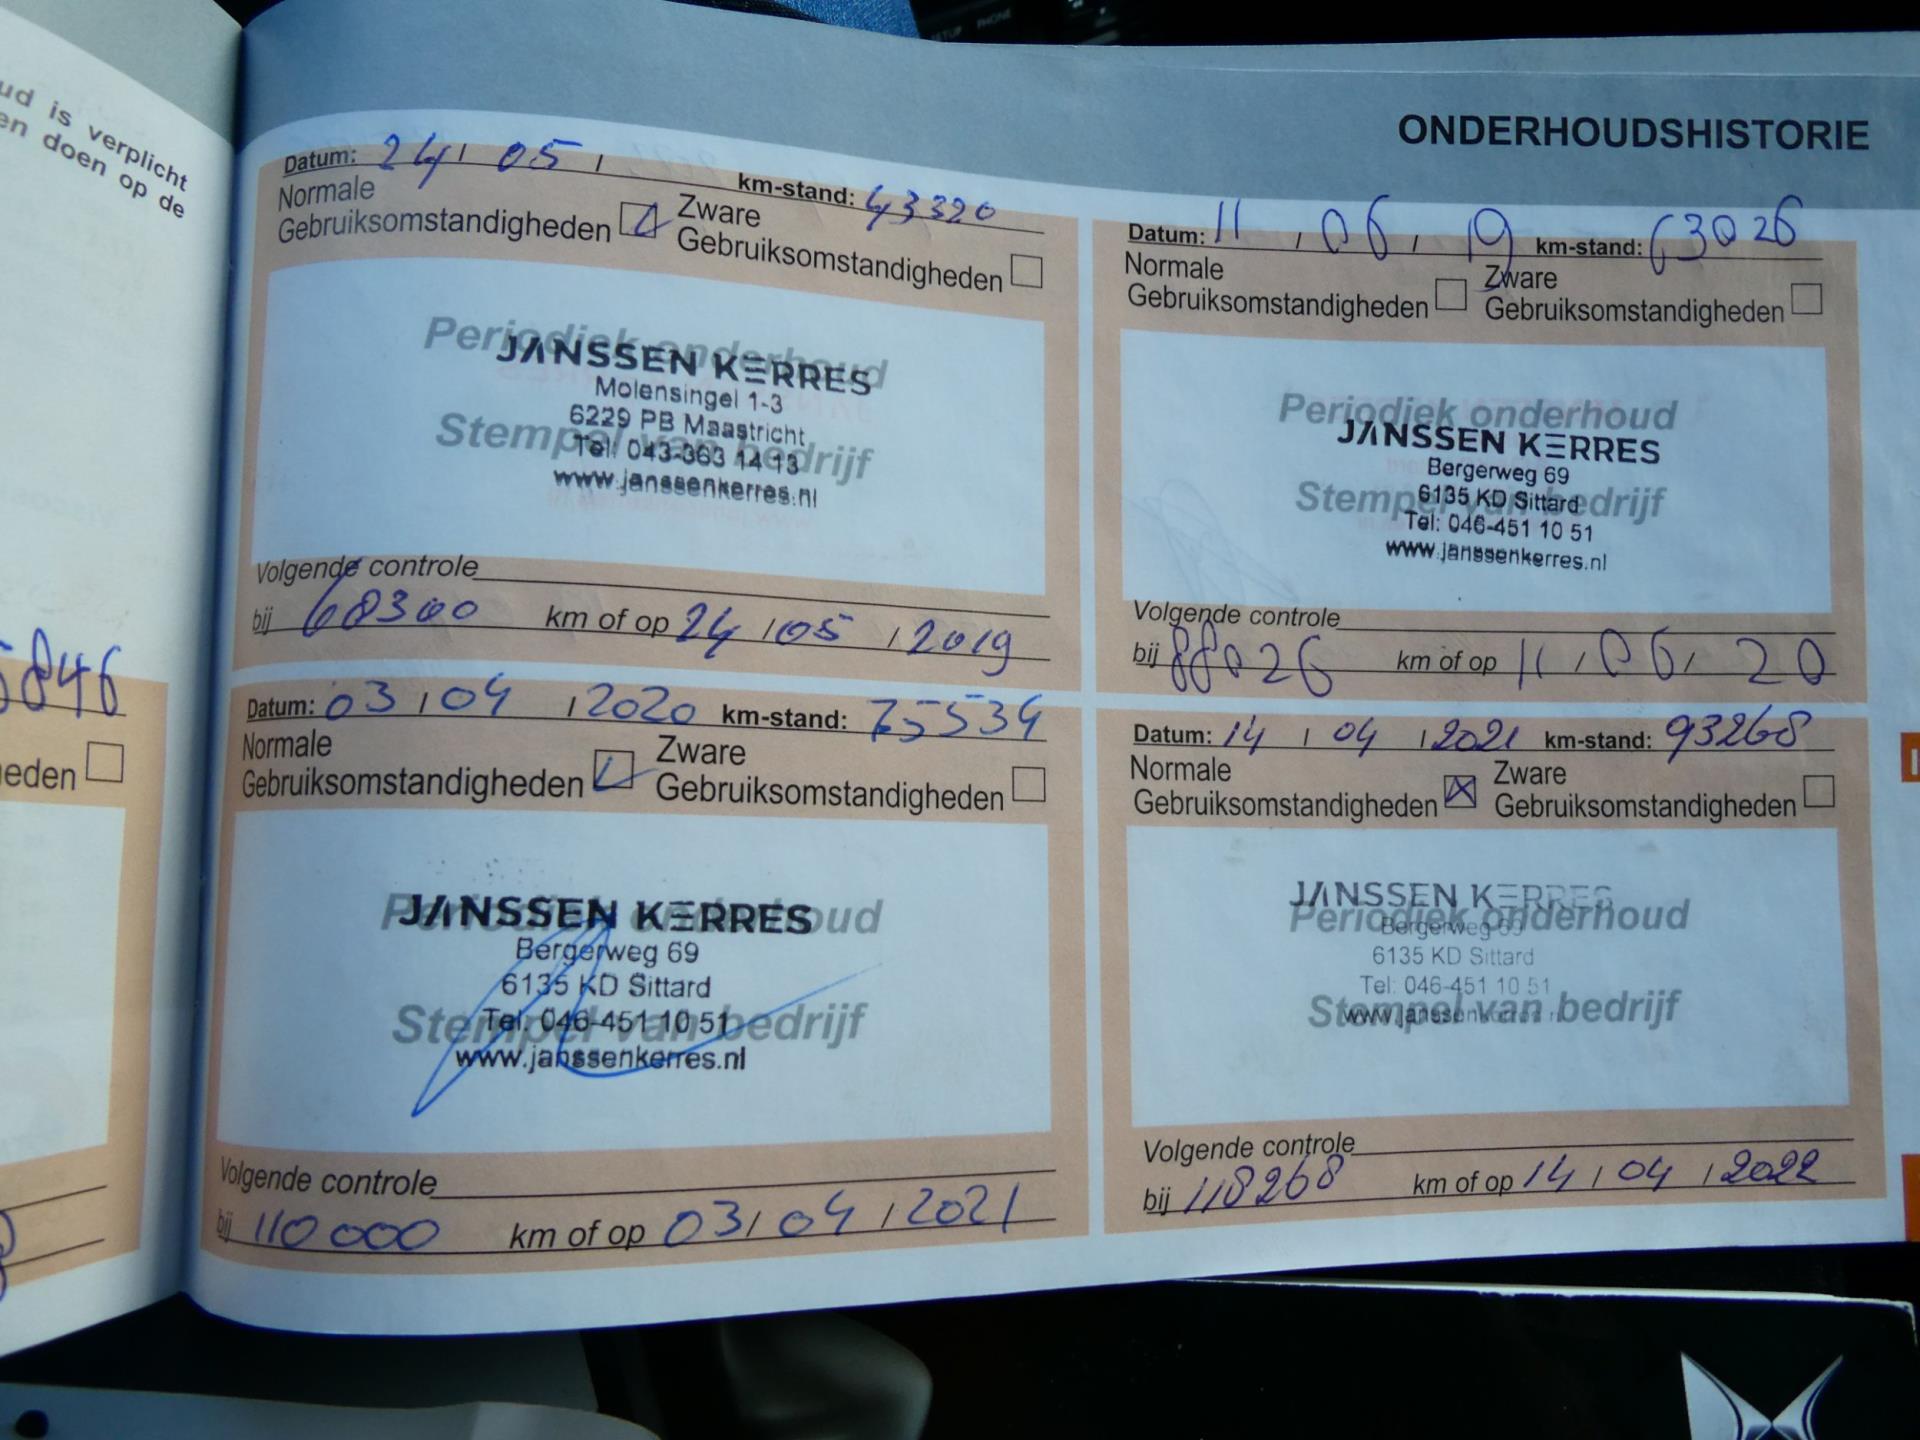 SETUP PHONE
ud is verplicht
en doen op de
5846
eden
ONDERHOUDSHISTORIE
Datum: 24 / 05 / km-stand: 43320
Normale
Gebruiksomstandigheden
Zware
Gebruiksomstandigheden
Periodiek onderhoud
Stempel van bedrijf
JANSSEN KERRES
Molensingel 1-3
6229 PB Maastricht
Tel: 043-363 14 13
www.janssenkerres.nl
Volgende controle
bij 68300 km of op 24 / 05 / 2019
Datum: 11 / 06 / 19 km-stand: 63026
Normale
Gebruiksomstandigheden
Zware
Gebruiksomstandigheden
Periodiek onderhoud
Stempel van bedrijf
JANSSEN KERRES
Bergerweg 69
6135 KD Sittard
Tel: 046-451 10 51
www.janssenkerres.nl
Volgende controle
bij 88026 km of op 11 / 06 / 20
Datum: 03 / 04 / 2020 km-stand: 75534
Normale
Gebruiksomstandigheden
Zware
Gebruiksomstandigheden
Periodiek onderhoud
Stempel van bedrijf
JANSSEN KERRES
Bergerweg 69
6135 KD Sittard
Tel: 046-451 10 51
www.janssenkerres.nl
Volgende controle
bij 110000 km of op 03 / 04 / 2021
Datum: 14 / 04 / 2021 km-stand: 93268
Normale
Gebruiksomstandigheden
Zware
Gebruiksomstandigheden
Periodiek onderhoud
Stempel van bedrijf
JANSSEN KERRES
Bergerweg 69
6135 KD Sittard
Tel: 046-451 10 51
www.janssenkerres.nl
Volgende controle
bij 118268 km of op 14 / 04 / 2022